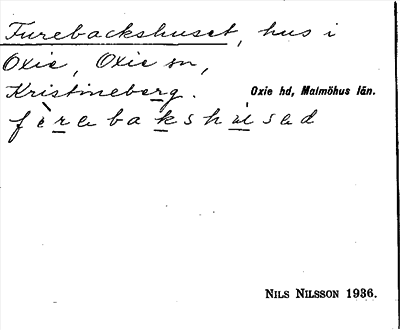 Furebackshuset, hus i
Oxie, Oxie sn,
Kristineberg. Oxie hd, Malmöhus län.
NILS NILSSON 1936.